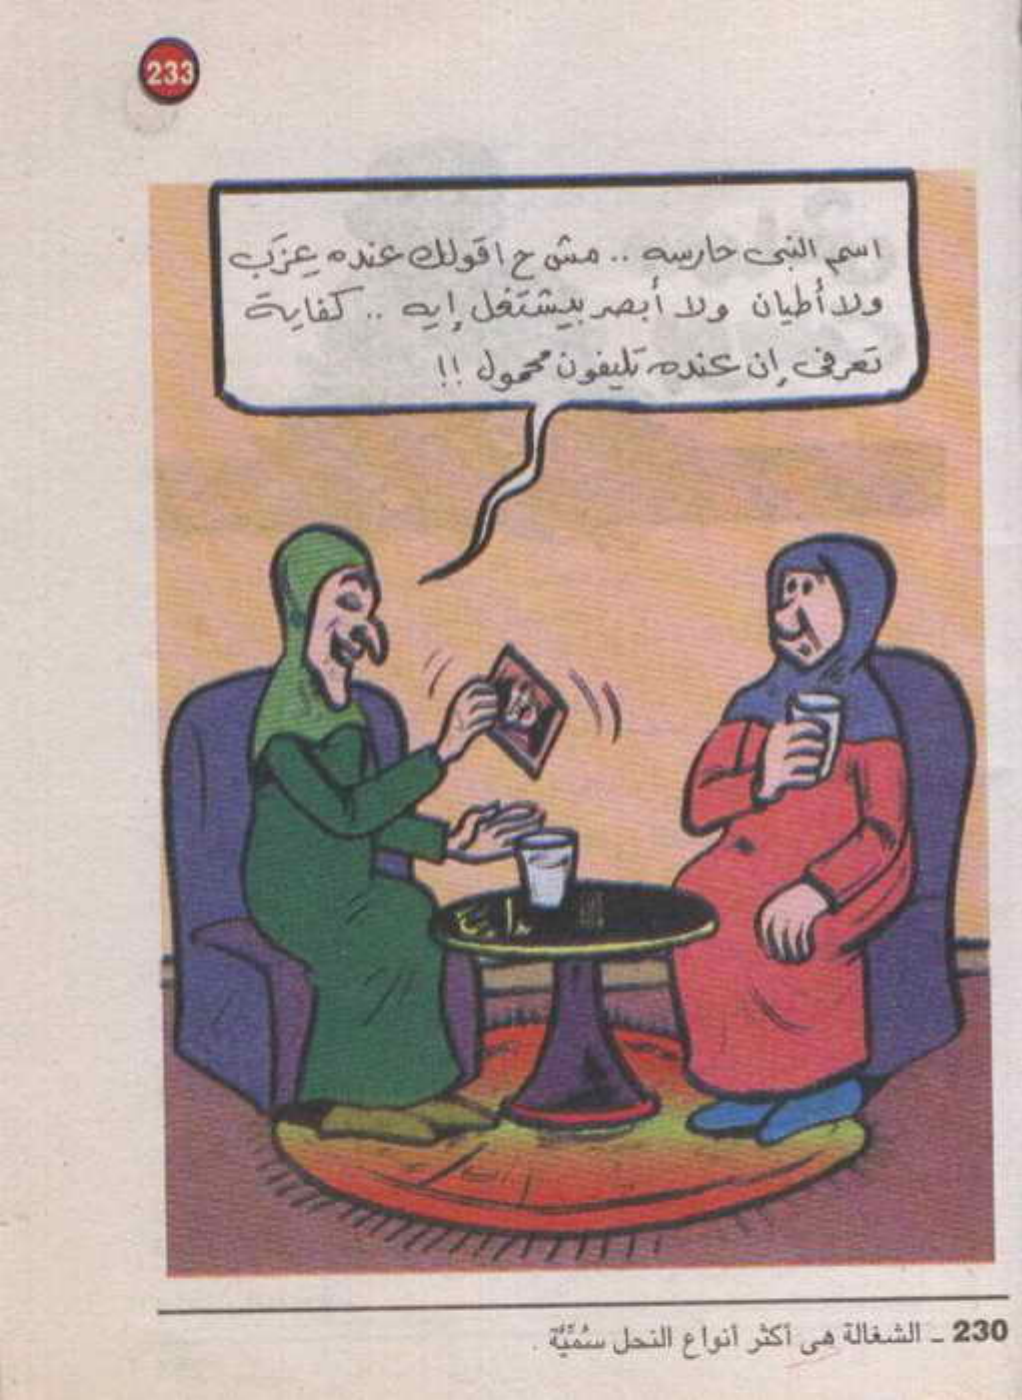 233
اسم النبى حارسه .. مش ح اقولك عنده عِزَب
ولا أطيان ولا أبصر بيشتغل إيه .. كفاية
تعرفى إن عنده تليفون محمول !!
230 ـ الشغالة هى أكثر أنواع النحل سُمِّيَّة .